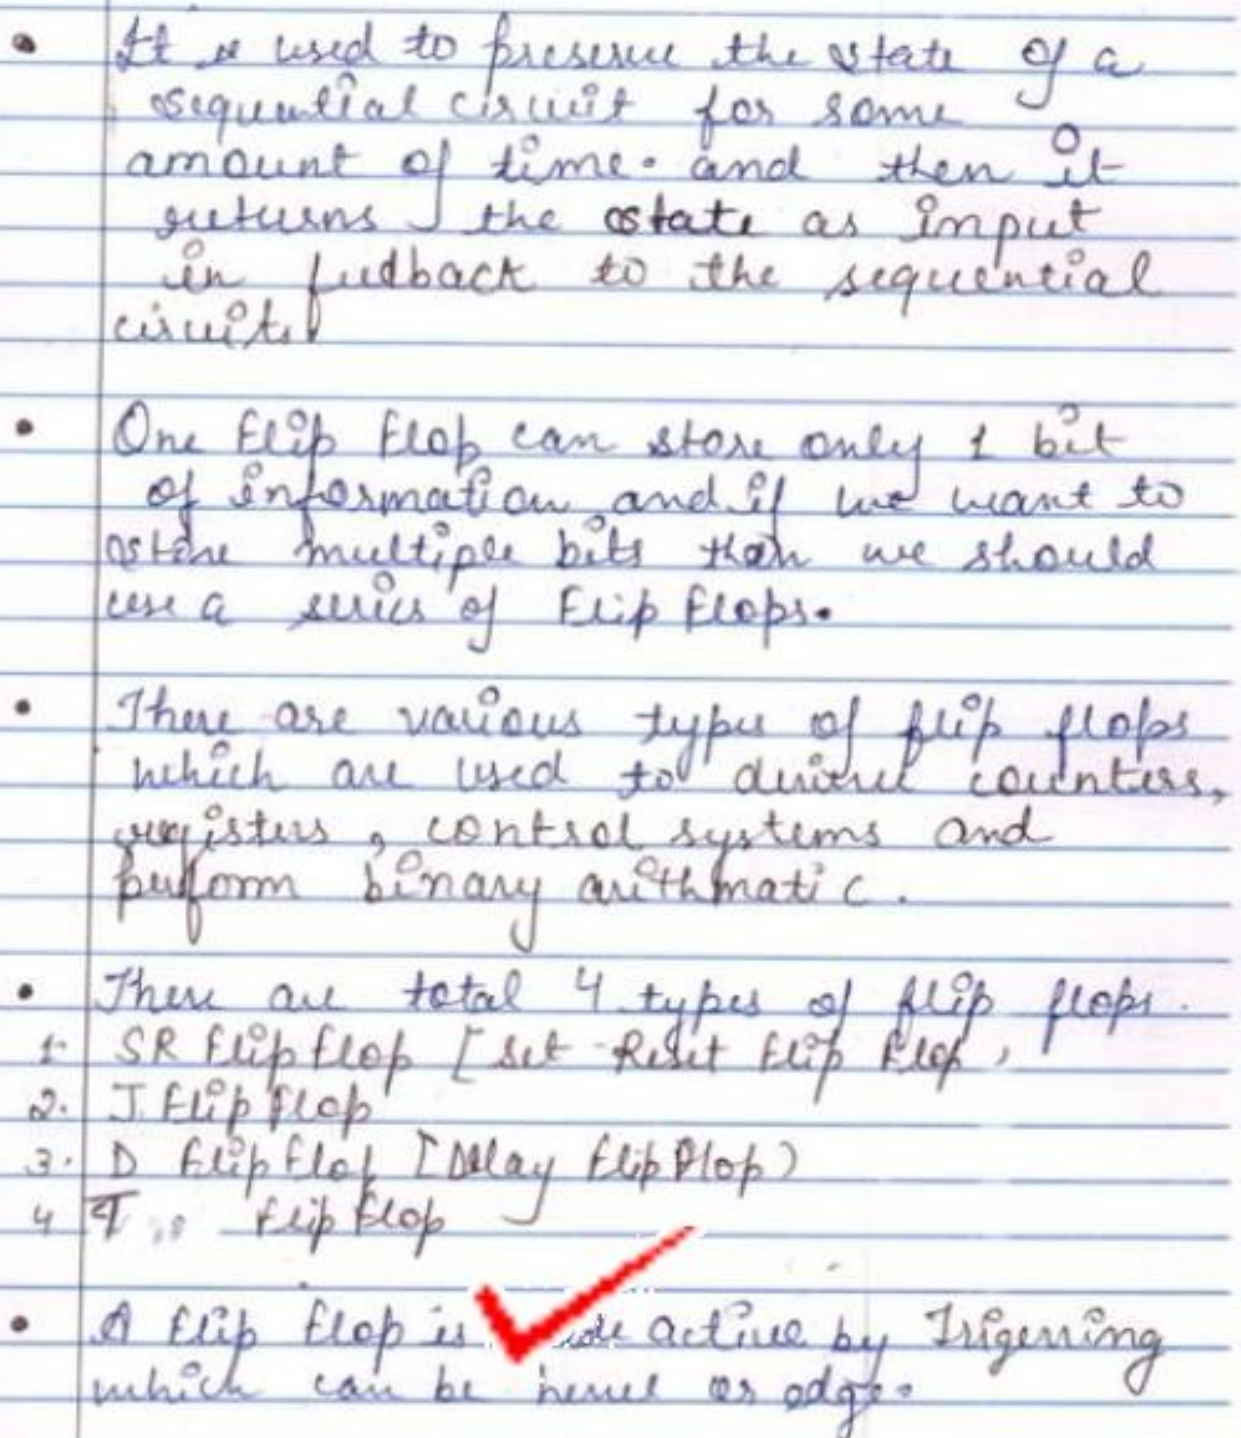 • It is used to preserve the state of a
sequential circuit for some
amount of time. and then it
returns the state as input
in feedback to the sequential
circuit.
• One flip flop can store only 1 bit
of information and if we want to
store multiple bits than we should
use a series of flip flops.
• There are various types of flip flops
which are used to counters,
registers, control systems and
perform binary arithmatic.
• There are total 4 types of flip flops.
1. SR flip flop [Set-Reset flip flop,
2. J. flip flop
3. D flip flop [Delay flip flop)
4 T flip flop
• A flip flop is active by Trigerring
which can be or edge.